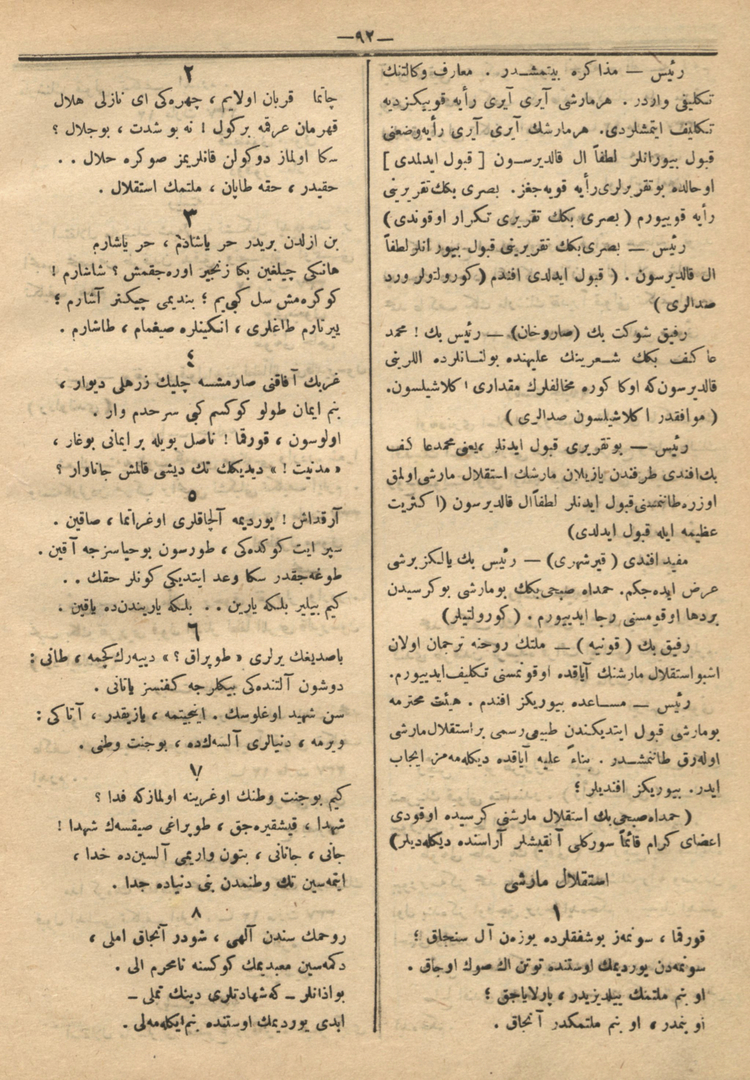 —٩٢—
رئيس — مذاكره بيتمشدر . معارف وكالتنك
تكليفى واردر . هرمارشى آيرى آيرى رأيه قويپكزديه
تكليف ايتمشلردى. هرمارشك آيرى آيرى رأيه‌وضعنى
قبول بيورانلر لطفاً ال قالديرسون [ قبول ايدلمدى ]
اوحالده بوتقريرلرى‌رأيه قويه‌جغز. بصرى بكك تقريرينى
رأيه قوييورم ( بصرى بكك تقريرى تكرار اوقوندى )
رئيس — بصرى‌بكك تقريرينى قبول بيورانلر لطفاً
ال قالديرسون . ( قبول ايدلدى افندم ( كورولتولر ورد
صدالرى )
رفيق شوكت بك (صاروخان) — رئيس بك ! محمد
عاكف بكك شعرينك عليهنده بولنانلرده اللرينى
قالديرسون‌كه اوكا كوره مخالفلرك مقدارى ا كلاشيلسون.
( موافقدر ا كلاشيلسون صدالرى )
رئيس — بوتقريرى قبول ايدنلر ، يعنى‌محمدعا كف
بك‌افندى طرفندن يازيلان مارشك استقلال مارشى‌اولمق
اوزره‌طانتمسنى‌قبول ايدنلر لطفاًال قالديرسون (ا كثريت
عظيمه ايله قبول ايدلدى)
مفيد افندى ( قيرشهرى) — رئيس بك يالكزبرشى
عرض ايده‌جكم. حمداه صبحى‌بكك بومارشى بوكرسيدن
بردها اوقومسنى رجا ايدييورم . ( كورولتيلر)
رفيق بك ( قونيه ) — ملتك روحنه ترجمان اولان
اشبواستقلال مارشنك آياقده اوقونمسنى تكليف‌ايدييورم.
رئيس — مساعده بيوريكز افندم . هيئت محترمه
بومارشى قبول ايتديكندن طبيعى‌رسمى براستقلال‌مارشى
اوله‌رق طانتمشدر . بناءً عليه آياقده ديكله‌مه‌من ايجاب
ايدر. بيوريكز افنديلر ؛
( حمداه‌صبحى‌بك استقلال مارشنى كرسيده اوقودى
اعضاى كرام قائماً سوركلى آلقيشلر آراسنده ديكله‌ديلر)
استقلال مارشى
١
قورقما ، سونمه‌ز بوشفقلرده يوزه‌ن آل سنجاق ؛
سونمه‌دن يورديمك اوستنده توتن اك صوك اوجاق .
او بنم ملتمك ييلديزيدر ، پارلاياجق ؛
او بنمدر ، او بنم ملتمكدر آنجاق .
٢
چاتما قربان اولايم ، چهره‌كى اى نازلى هلال
قهرمان عرقمه بركول ! نه بو شدت ، بوجلال ؟
سكا اولماز دوكولن قانلريمز صوكره حلال . .
حقيدر ، حقه طاپان ، ملتمك استقلال .
٣
بن ازلدن بريدر حر ياشادم ، حر ياشارم
هانكى چيلغين بكا زنجير اوره‌جقمش ؟ شاشارم !
كوكره‌مش سل كبى‌يم ؛ بنديمى چيكنر آشارم ؛
ييرتارم طاغلرى ، انكينلره صيغمام ، طاشارم .
٤
غربك آفاقنى صارمشسه چليك زرهلى ديوار ،
بنم ايمان طولو كوكسم كبى سرحدم وار .
اولوسون ، قورقما ! ناصل بويله بر ايمانى بوغار ،
« مدنيت ! » ديديكك تك ديشى قالمش جاناوار ؟
٥
آرقداش ! يورديمه آلچاقلرى اوغراتما ، صاقين .
سپر ايت كوكده‌كى ، طورسون بوحياسزجه آقين .
طوغه‌جقدر سكا وعد ايتديكى كونلر حقك . .
كيم بيلير بلكه يارين . . بلكه ياريندن‌ده ياقين .
٦
باصديغك يرلرى « طوپراق ؟ » دييه‌رك‌كچمه ، طانى :
دوشون آلتنده‌كى بيكلرجه كفنسز ياتانى .
سن شهيد اوغلوسك . اينجيتمه ، يازيقدر ، آتاكى :
ويرمه ، دنيالرى آلسه‌ك‌ده ، بوجنت وطنى .
٧
كيم بوجنت وطنك اوغرينه اولمازكه فدا ؟
شهدا ، فيشقيره‌جق ، طوپراغى صيقسه‌ك شهدا !
جانى ، جانانى ، بتون واريمى آلسين‌ده خدا ،
ايتمه‌سين تك وطنمدن بنى دنياده جدا .
٨
روحمك سندن آلهى ، شودر آنجاق املى ،
دكمه‌سين معبديمك كوكسنه نامحرم الى .
بواذانلر — كه‌شهادتلرى دينك تملى —
ابدى يورديمك اوستنده بنم‌ايكله‌مه‌لى .